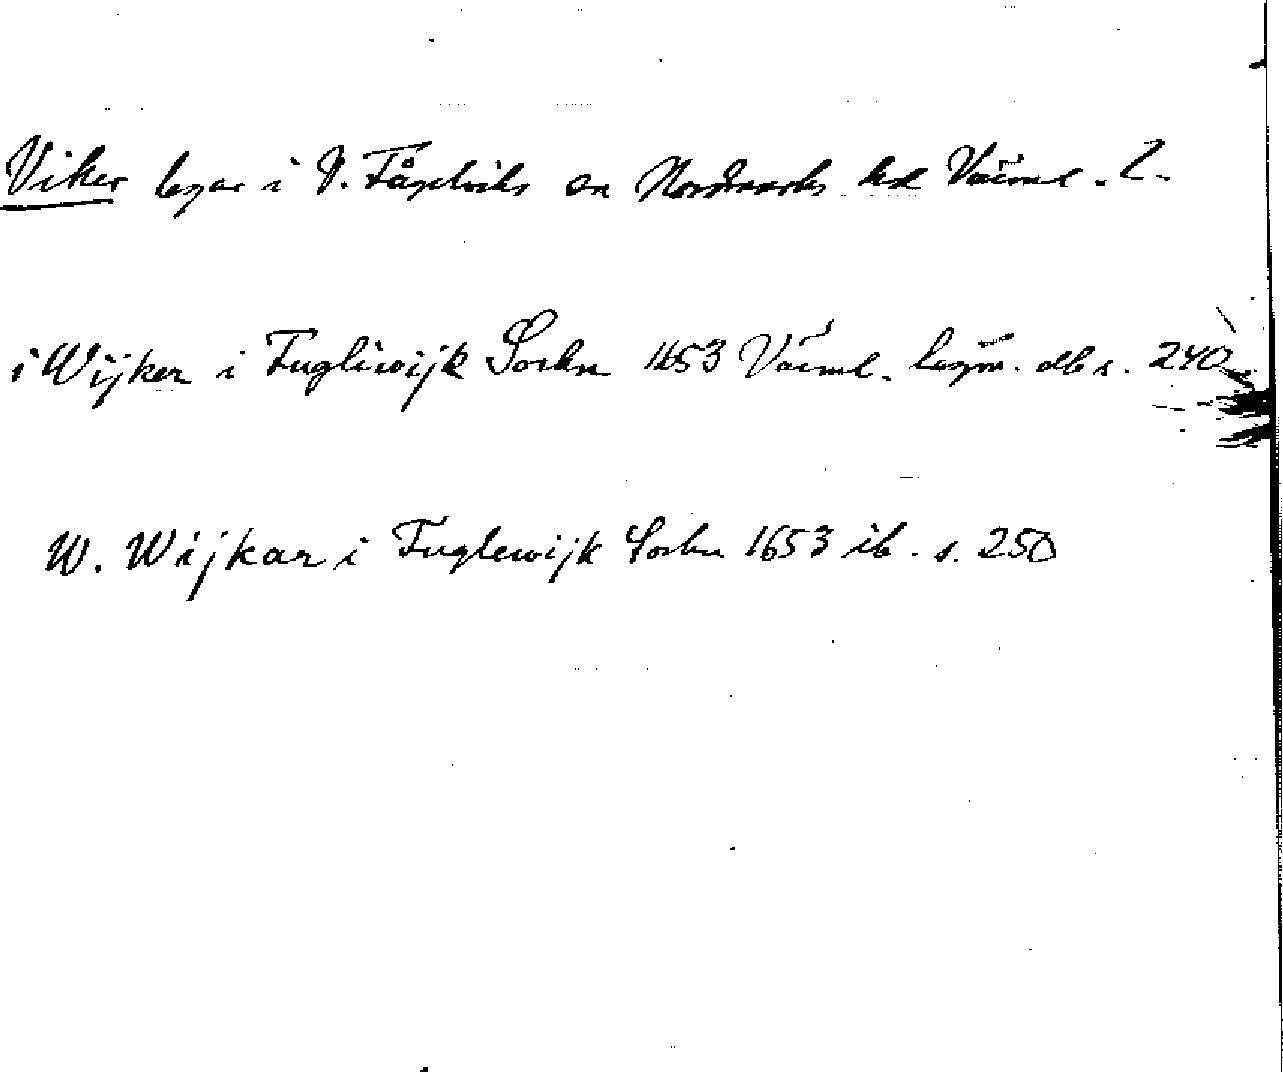 Viker lägar i V. Fågelviks sn Nordmarks hd Värml. l.
i Wijker i Fugliwijk Sockn 1653 Värml. lagm. dlb s. 240
W. Wijkar i Fuglewijk Sockn 1653 ib. s. 250